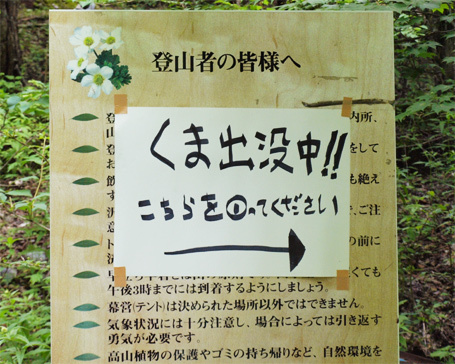 登山者の皆様へ
くま出没中!!
こちらを回ってください
内所、
をして
も絶え
ご注
の前に
くても
午後3時までには到着するようにしましょう。
幕営(テント)は決められた場所以外ではできません。
気象状況には十分注意し、場合によっては引き返す
勇気が必要です。
高山植物の保護やゴミの持ち帰りなど、自然環境を